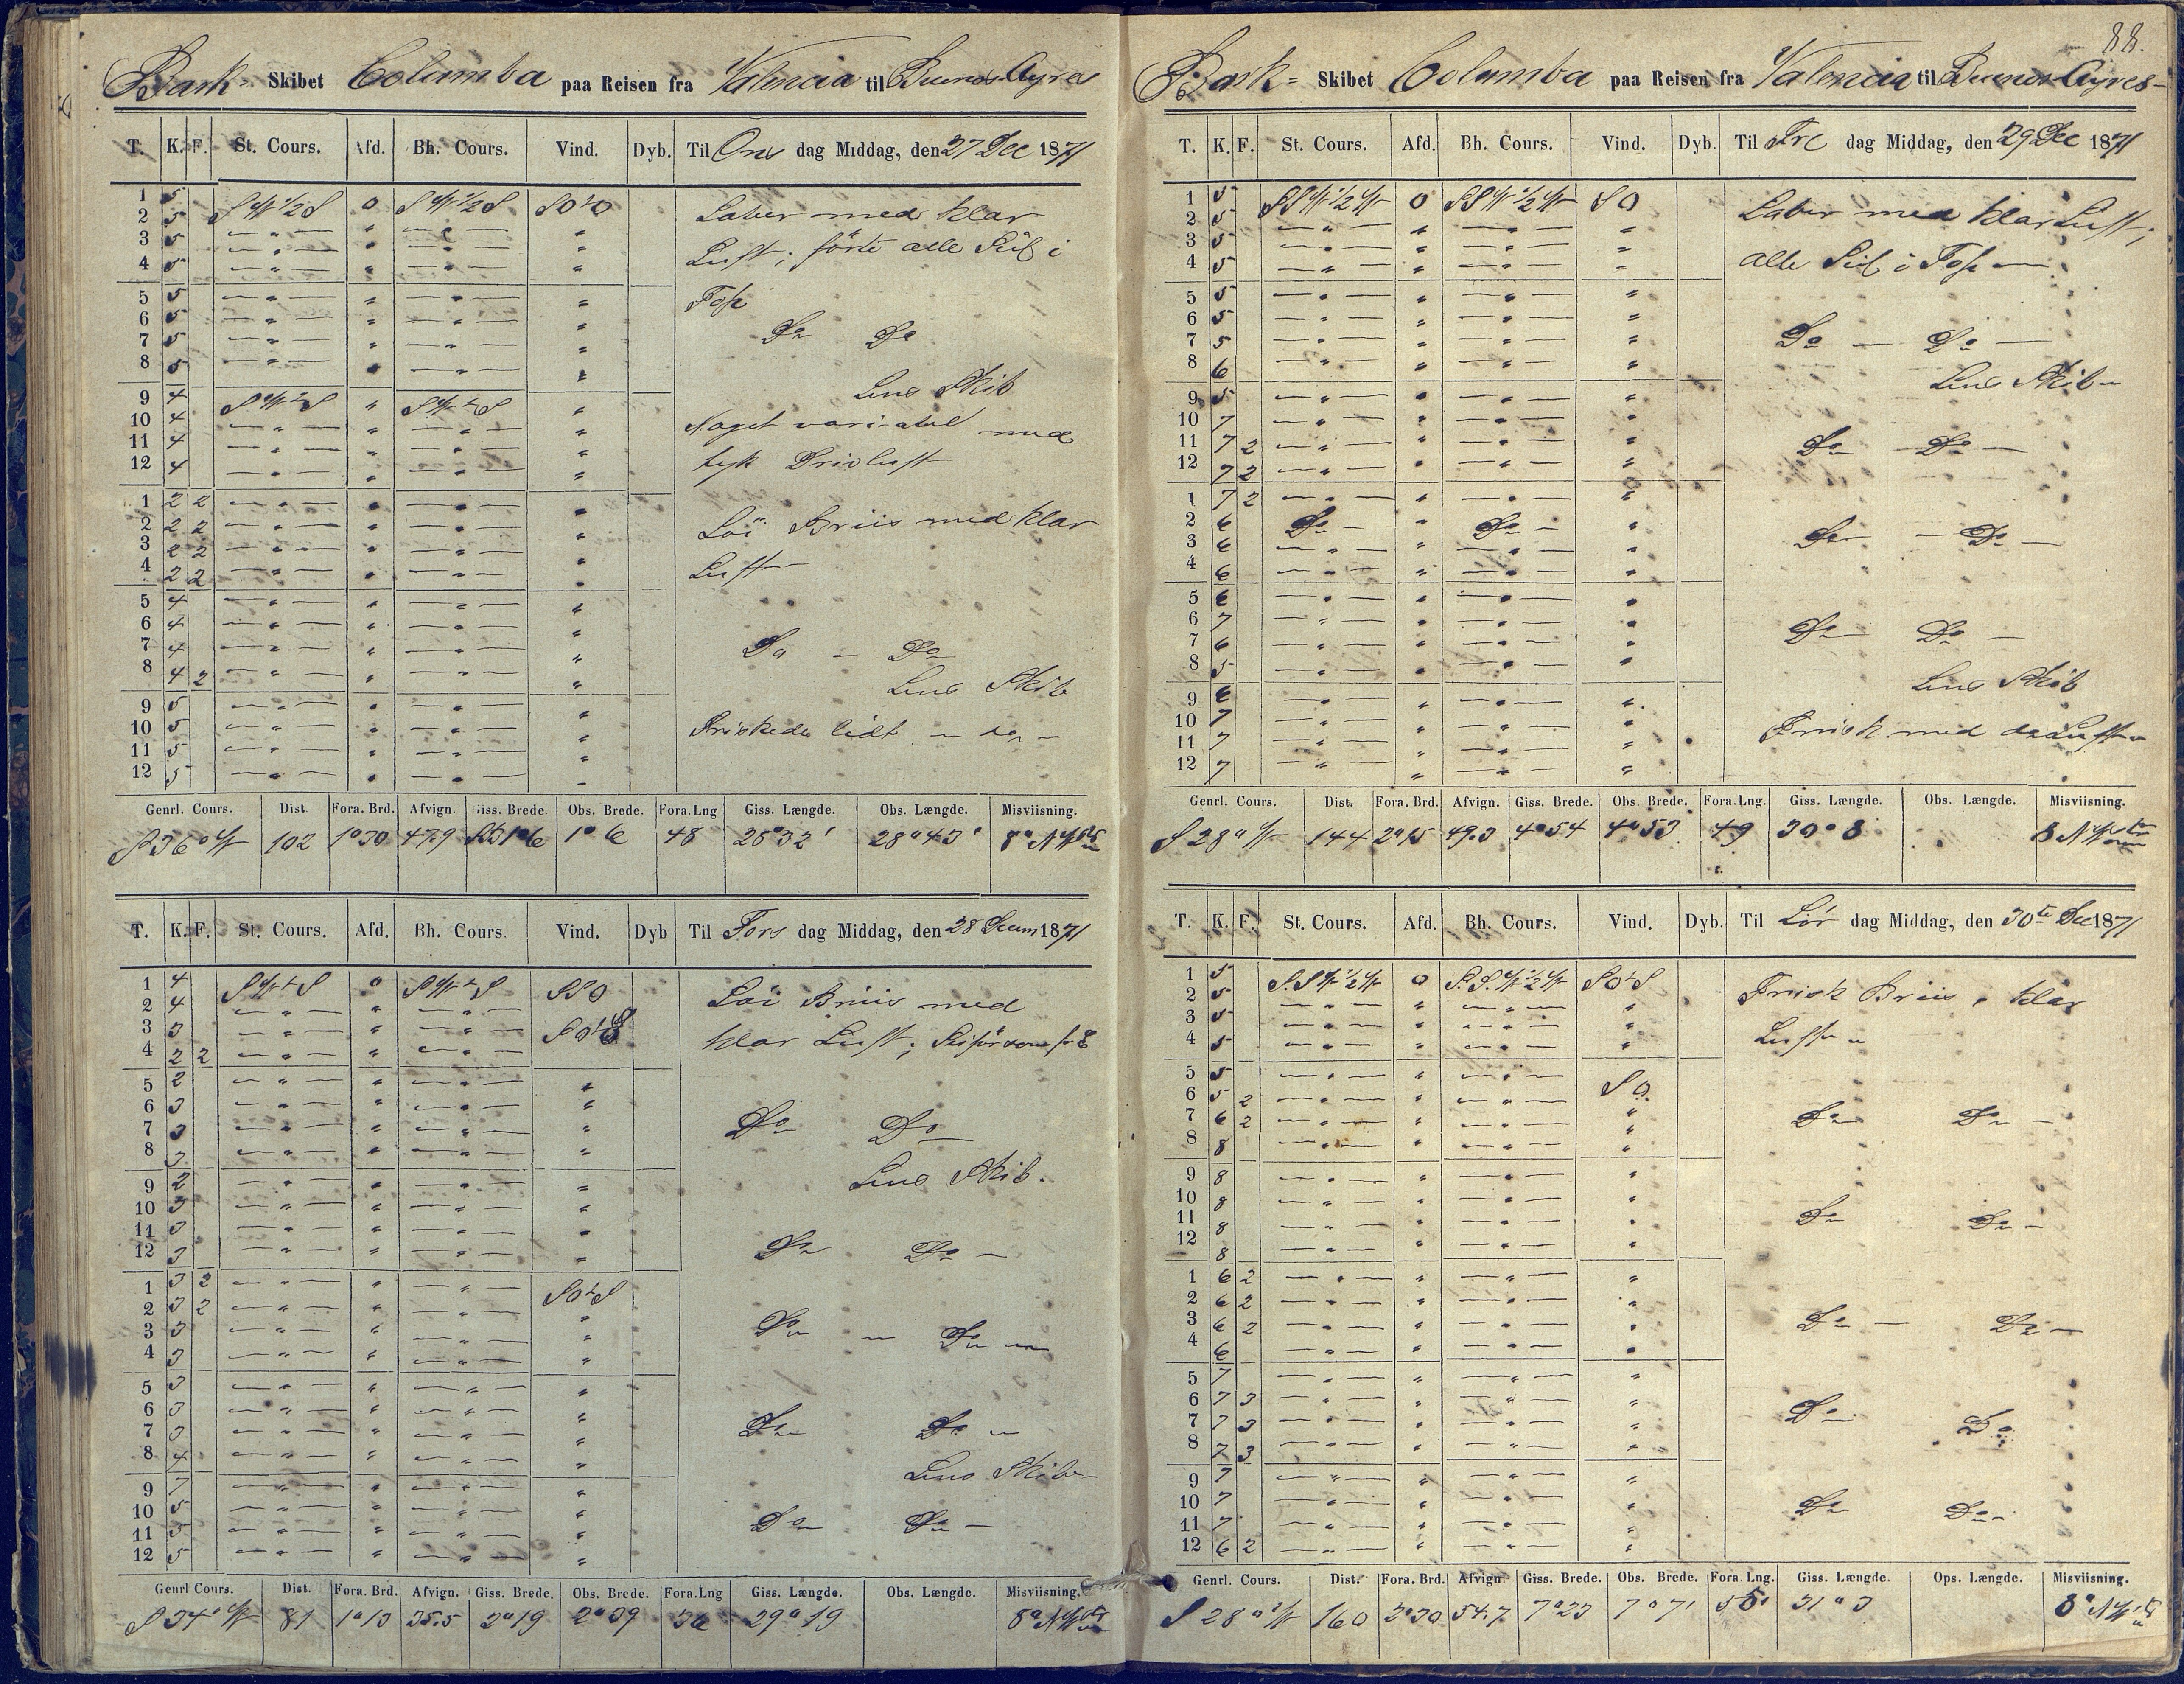 Bark- Skibet Columba paa Reisen fra Valencia til Buenos Ayres
T. K. F. St. Cours. Afd. Bh. Cours. Vind. Dyb. Til Ons dag Middag, den 27 Dec 1871
1 5 SW 1/2 S 0 SW 1/2 S SOtO Laber med klar
2 5 — " — " — " — "
3 5 — " — " — " — " Luft; förte alle Seil i
4 5 — " — " — " — "
5 5 — " — " — " — " Top
6 5 — " — " — " — "
7 5 — " — " — " — " Do Do
8 5 — " — " — " — "
Lens Skib
9 4 SWtS " SWtS "
10 4 — " — " — " — " Noget variabel med
11 4 — " — " — " — "
12 4 — " — " — " — " tyk Luft
1 2 2 — " — " — " — "
2 2 2 — " — " — " — " Löi Briis med klar
3 2 2 — " — " — " — "
4 2 2 — " — " — " — " Luft
5 4 — " — " — " — "
6 4 — " — " — " — "
7 4 — " — " — " — " Do — Do
8 4 2 — " — " — " — "
Lens Skib
9 5 — " — " — " — "
10 5 — " — " — " — " Friskede lidt — do —
11 5 — " — " — " — "
12 5 — " — " — " — "
Genrl. Cours. Dist. Fora. Brd. Afvign. Giss. Brede Obs. Brede. Fora. Lng Giss. Længde. Obs. Længde. Misviisning.
S 36° W 102 1°30 47.9 1°6 1°6 48 28°32' 28°43' 8° NW
T. K. F. St. Cours. Afd. Bh. Cours. Vind. Dyb Til Tors dag Middag, den 28 Decem 1871
1 4 SWtS 0 SWtS SSO Löi Briis med
2 4 — " — " — " —
3 3 — " — " — " — SOtS klar Luft;
4 2 2 — " — " — " —
5 2 — " — " — " — "
6 3 — " — " — " — "
7 3 — " — " — " — " Do Do
8 3 — " — " — " — "
Lens Skib.
9 2 — " — " — " — "
10 3 — " — " — " — "
11 3 — " — " — " — "
12 3 — " — " — " — " Do Do —
1 3 2 — " — " — " — SOtS
2 3 2 — " — " — " — "
3 3 — " — " — " — " Do — Do —
4 3 — " — " — " — "
5 3 — " — " — " — "
6 3 — " — " — " — "
7 3 — " — " — " — " Do Do —
8 4 — " — " — " — "
Lens Skib —
9 7 — " — " — " — "
10 5 — " — " — " — "
11 5 — " — " — " — " Do Do —
12 5 — " — " — " — "
Genrl Cours. Dist. Fora. Brd. Afvign. Giss. Brede. Obs. Brede. Fora. Lng Giss. Længde. Obs. Længde. Misviisning.
S 34° W 81 1°13 35.5 2°19 2°39 36 29°19 8° NW
88.
Bark= Skibet Columba paa Reisen fra Valencia til Buenos Ayres-
T. K. F. St. Cours. Afd. Bh. Cours. Vind. Dyb. Til Fre dag Middag, den 29 Dec 1871
1 5 SSW 1/2 W 0 SSW 1/2 W SO Laber med klar Luft;
2 5 — " — " — " — "
3 5 — " — " — " — "
4 5 — " — " — " — " alle Seil i Top —
5 5 — " — " — " — "
6 5 — " — " — " — "
7 5 — " — " — " — " Do — Do —
8 6 — " — " — " — "
Lens Skib —
9 5 — " — " — " — "
10 7 — " — " — " — "
11 7 2 — " — " — " — " Do Do —
12 7 2 — " — " — " — "
1 7 2 — " — " — " — "
2 6 Do — " Do — "
3 6 — " — " — " — " Do — Do —
4 6 — " — " — " — "
5 6 — " — " — " — "
6 7 — " — " — " — "
7 6 — " — " — " — " Do — Do —
8 5 — " — " — " — "
Lens Skib
9 6 — " — " — " — "
10 7 — " — " — " — "
11 7 — " — " — " — " Frisk med do Luft —
12 7 — " — " — " — "
Genrl. Cours. Dist. Fora. Brd. Afvign. Giss. Brede. Obs. Brede. Fora. Lng. Giss. Længde. Obs. Længde. Misviisning.
S 28° W 144 2°15 49.3 4°54 4°53 49 30°8 8 NW
T. K. F. St. Cours. Afd. Bh. Cours. Vind. Dyb. Til Lör dag Middag, den 30te Dec 1871
1 5 S.SW 1/2 W 0 S.S.W 1/2 W SOtS Frisk Briis, klar
2 5 — " — " — " — "
3 5 — " — " — " — "
4 5 — " — " — " — " Luft —
5 5 — " — " — " — SO
6 5 2 — " — " — " —
7 6 2 — " — " — " — " Do Do —
8 8 — " — " — " — "
9 8 — " — " — " — "
10 8 — " — " — " — "
11 8 — " — " — " — " Do Do —
12 8 — " — " — " — "
1 6 2 — " — " — " — "
2 6 2 — " — " — " — "
3 6 2 — " — " — " — " Do — Do —
4 6 — " — " — " — "
5 7 — " — " — " — "
6 7 3 — " — " — " — "
7 7 3 — " — " — " — " Do Do
8 7 3 — " — " — " — "
9 7 — " — " — " — "
10 7 — " — " — " — "
11 7 — " — " — " — " Do Do —
12 6 2 — " — " — " — "
Genrl. Cours. Dist. Fora. Brd. Afvign. Giss. Brede. Obs. Brede. Fora. Lng. Giss. Længde. Ops. Længde. Misviisning.
S 28° W 160 2°30 54.7 7°23 7°7' 55' 31°3 8° NW